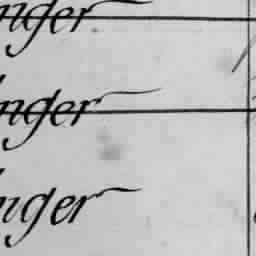 nger
nger
nger